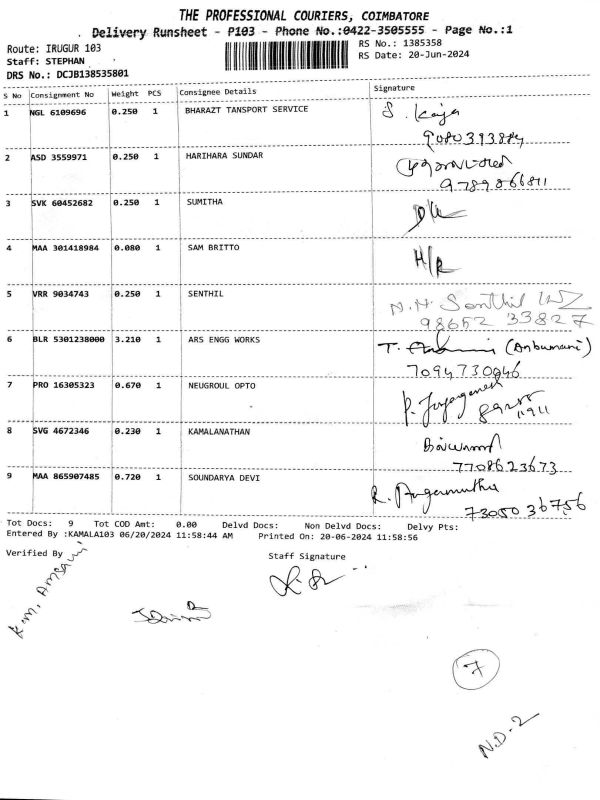 THE PROFESSIONAL COURIERS, COIMBATORE
Delivery Runsheet - P103 - Phone No.:0422-3505555 - Page No.:1
Route: IRUGUR 103
RS No.: 1385358
Staff: STEPHAN
RS Date: 20-Jun-2024
DRS No.: DCJB138535801
S No Consignment No Weight PCS Consignee Details Signature
1 NGL 6109696 0.250 1 BHARAZT TANSPORT SERVICE
2 ASD 3559971 0.250 1 HARIHARA SUNDAR
3 SVK 60452682 0.250 1 SUMITHA
4 MAA 301418984 0.080 1 SAM BRITTO H/R
5 VRR 9034743 0.250 1 SENTHIL N.N. Senthil
98652 33827
6 BLR 5301238000 3.210 1 ARS ENGG WORKS T. (Anbumani)
7094730046
7 PRO 16305323 0.670 1 NEUGROUL OPTO
8 SVG 4672346 0.230 1 KAMALANATHAN
7708623673
9 MAA 865907485 0.720 1 SOUNDARYA DEVI R.
73050 36756
Tot Docs: 9 Tot COD Amt: 0.00 Delvd Docs: Non Delvd Docs: Delvy Pts:
Entered By :KAMALA103 06/20/2024 11:58:44 AM Printed On: 20-06-2024 11:58:56
Verified By
Staff Signature
7
N.D-2